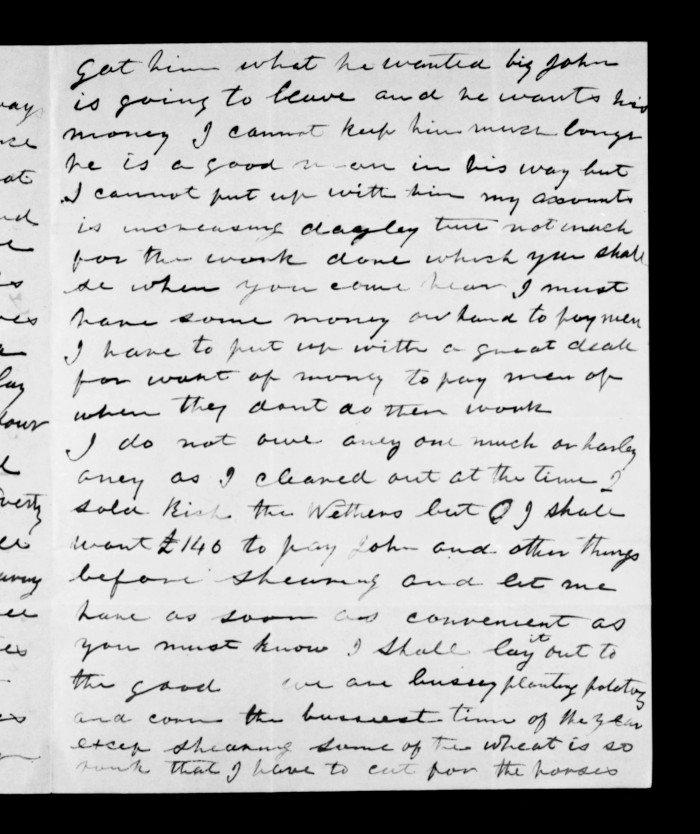 got him what he wanted big John
is going to leave and he wants his
money I cannot keep him much longr
he is a good man in his way but
I cannot put up with him my accounts
is increasing dayley but not much
for the work done which you shall
se when you come hear I must
have some money on hand to pay men
I have to put up with a great deall
for want of money to pay men of
when they dont do then work
I do not owe aney one much or harley
aney as I cleared out at the time I
sold the Wethers but I shall
want £140 to pay John and other things
before shearing and let me
have as soon as convenient as
you must know I shall lay it out to
the good we are bussey planting potatoes
and corn the bussiest time of the year
excep shearing some of the wheat is so
rank that I have to cut for the horses